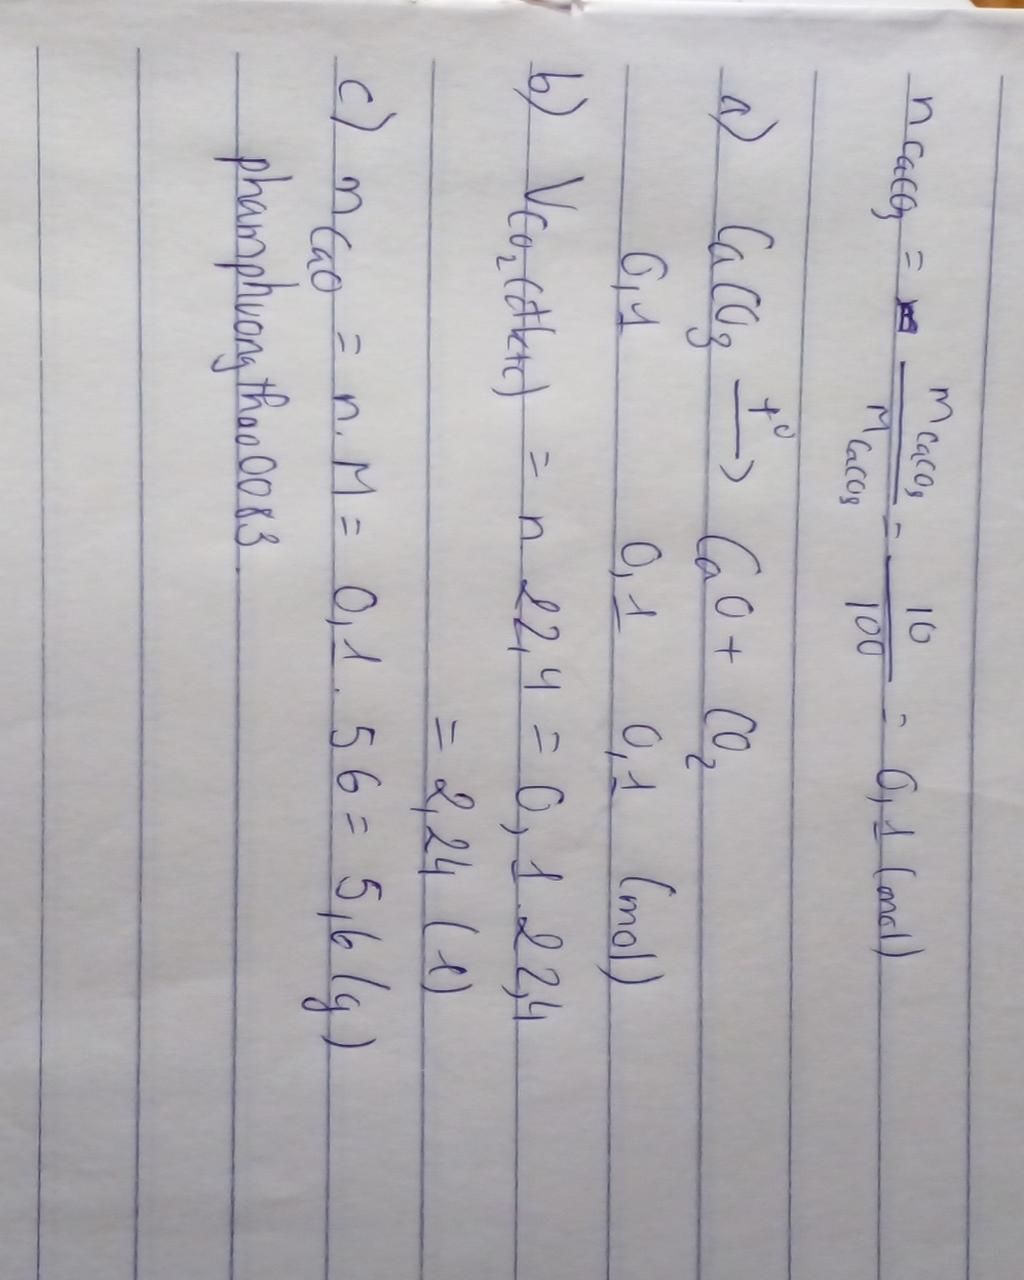 n CaCO3 = m CaCO3 / M CaCO3 = 10 / 100 = 0,1 (mol)
a) CaCO3 t° → CaO + CO2
0,1 0,1 0,1 (mol)
b) VCO2(đktc) = n 22,4 = 0,1.22,4
= 2,24 (l)
c) mCaO = n.M = 0,1.56 = 5,6 (g)
phamphuongthao0083.